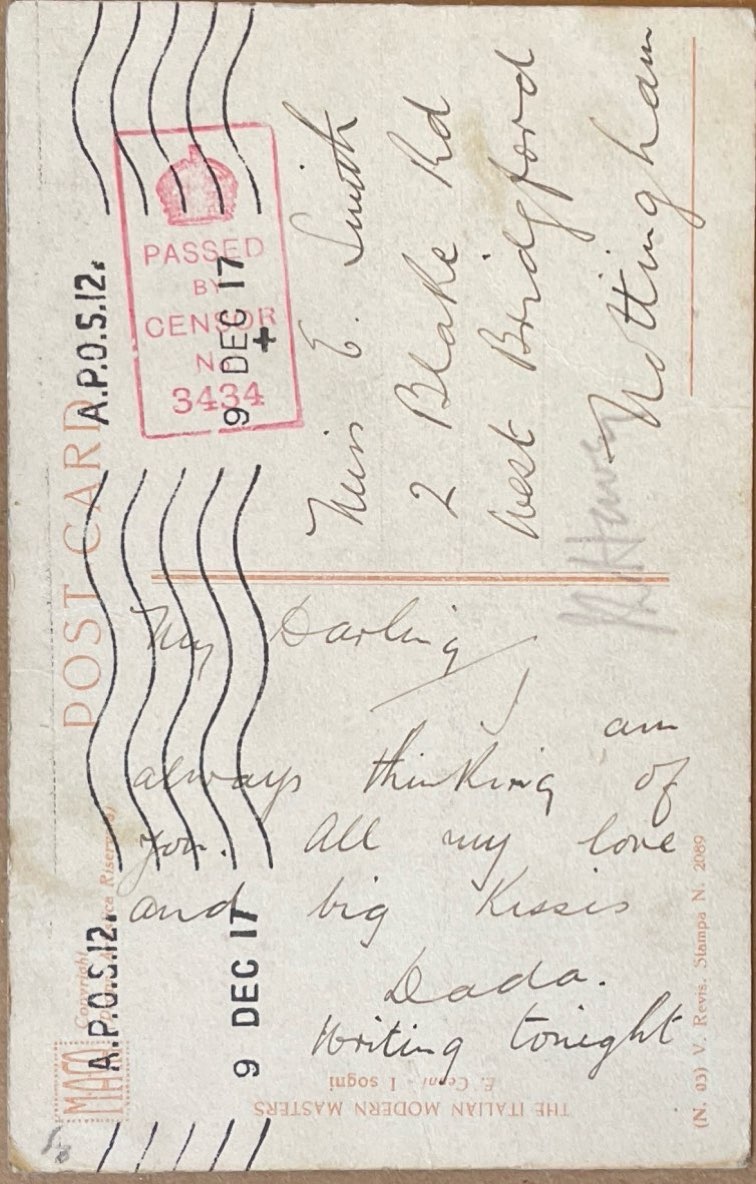 POST CARD
A.P.O.S.12.
9 DEC 17
PASSED
BY
CENSOR
No
3434
A.P.O.S.12.
9 DEC 17
My Darling,
am
always thinking of
you. All my love
and big Kisses
Dada.
Writing tonight
Miss E. Smith
2 Blake Rd
West Bridgford
Nottingham
Copyright
THE ITALIAN MODERN MASTERS
E. Cenni - I sogni
(N. 03) V. Revis. Stampa N. 2089